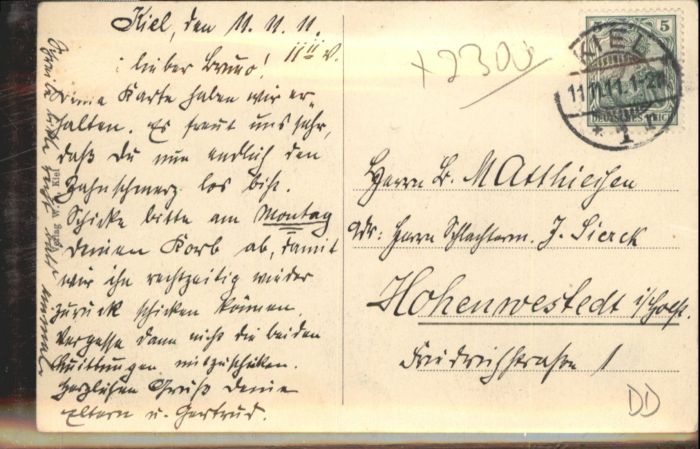 Kiel, den 11. 11. 11.
11 11 V.
lieber Bruno!
Deine Karte haben wir er-
halten. Es freut uns sehr,
daß Du nun endlich den
Zahnschmerz los bist.
Schicke bitte am Montag
deinen Korb ab, damit
wir ihn rechtzeitig wieder
zurück schicken können.
Vergesse dann nicht die beiden
Quittungen mitzuschicken.
Herzlichen Gruß Deine
Eltern u. Gertrud.
Verlag Kiel
+2300
KIEL
11.11.11.1-2N
* 1
5
DEUTSCHES REICH
Herrn B. Matthiesen
Adr: Herrn Schlachterm. J. Sierck
Hohenwestedt i/Holst.
Friedrichstraße 1
DD